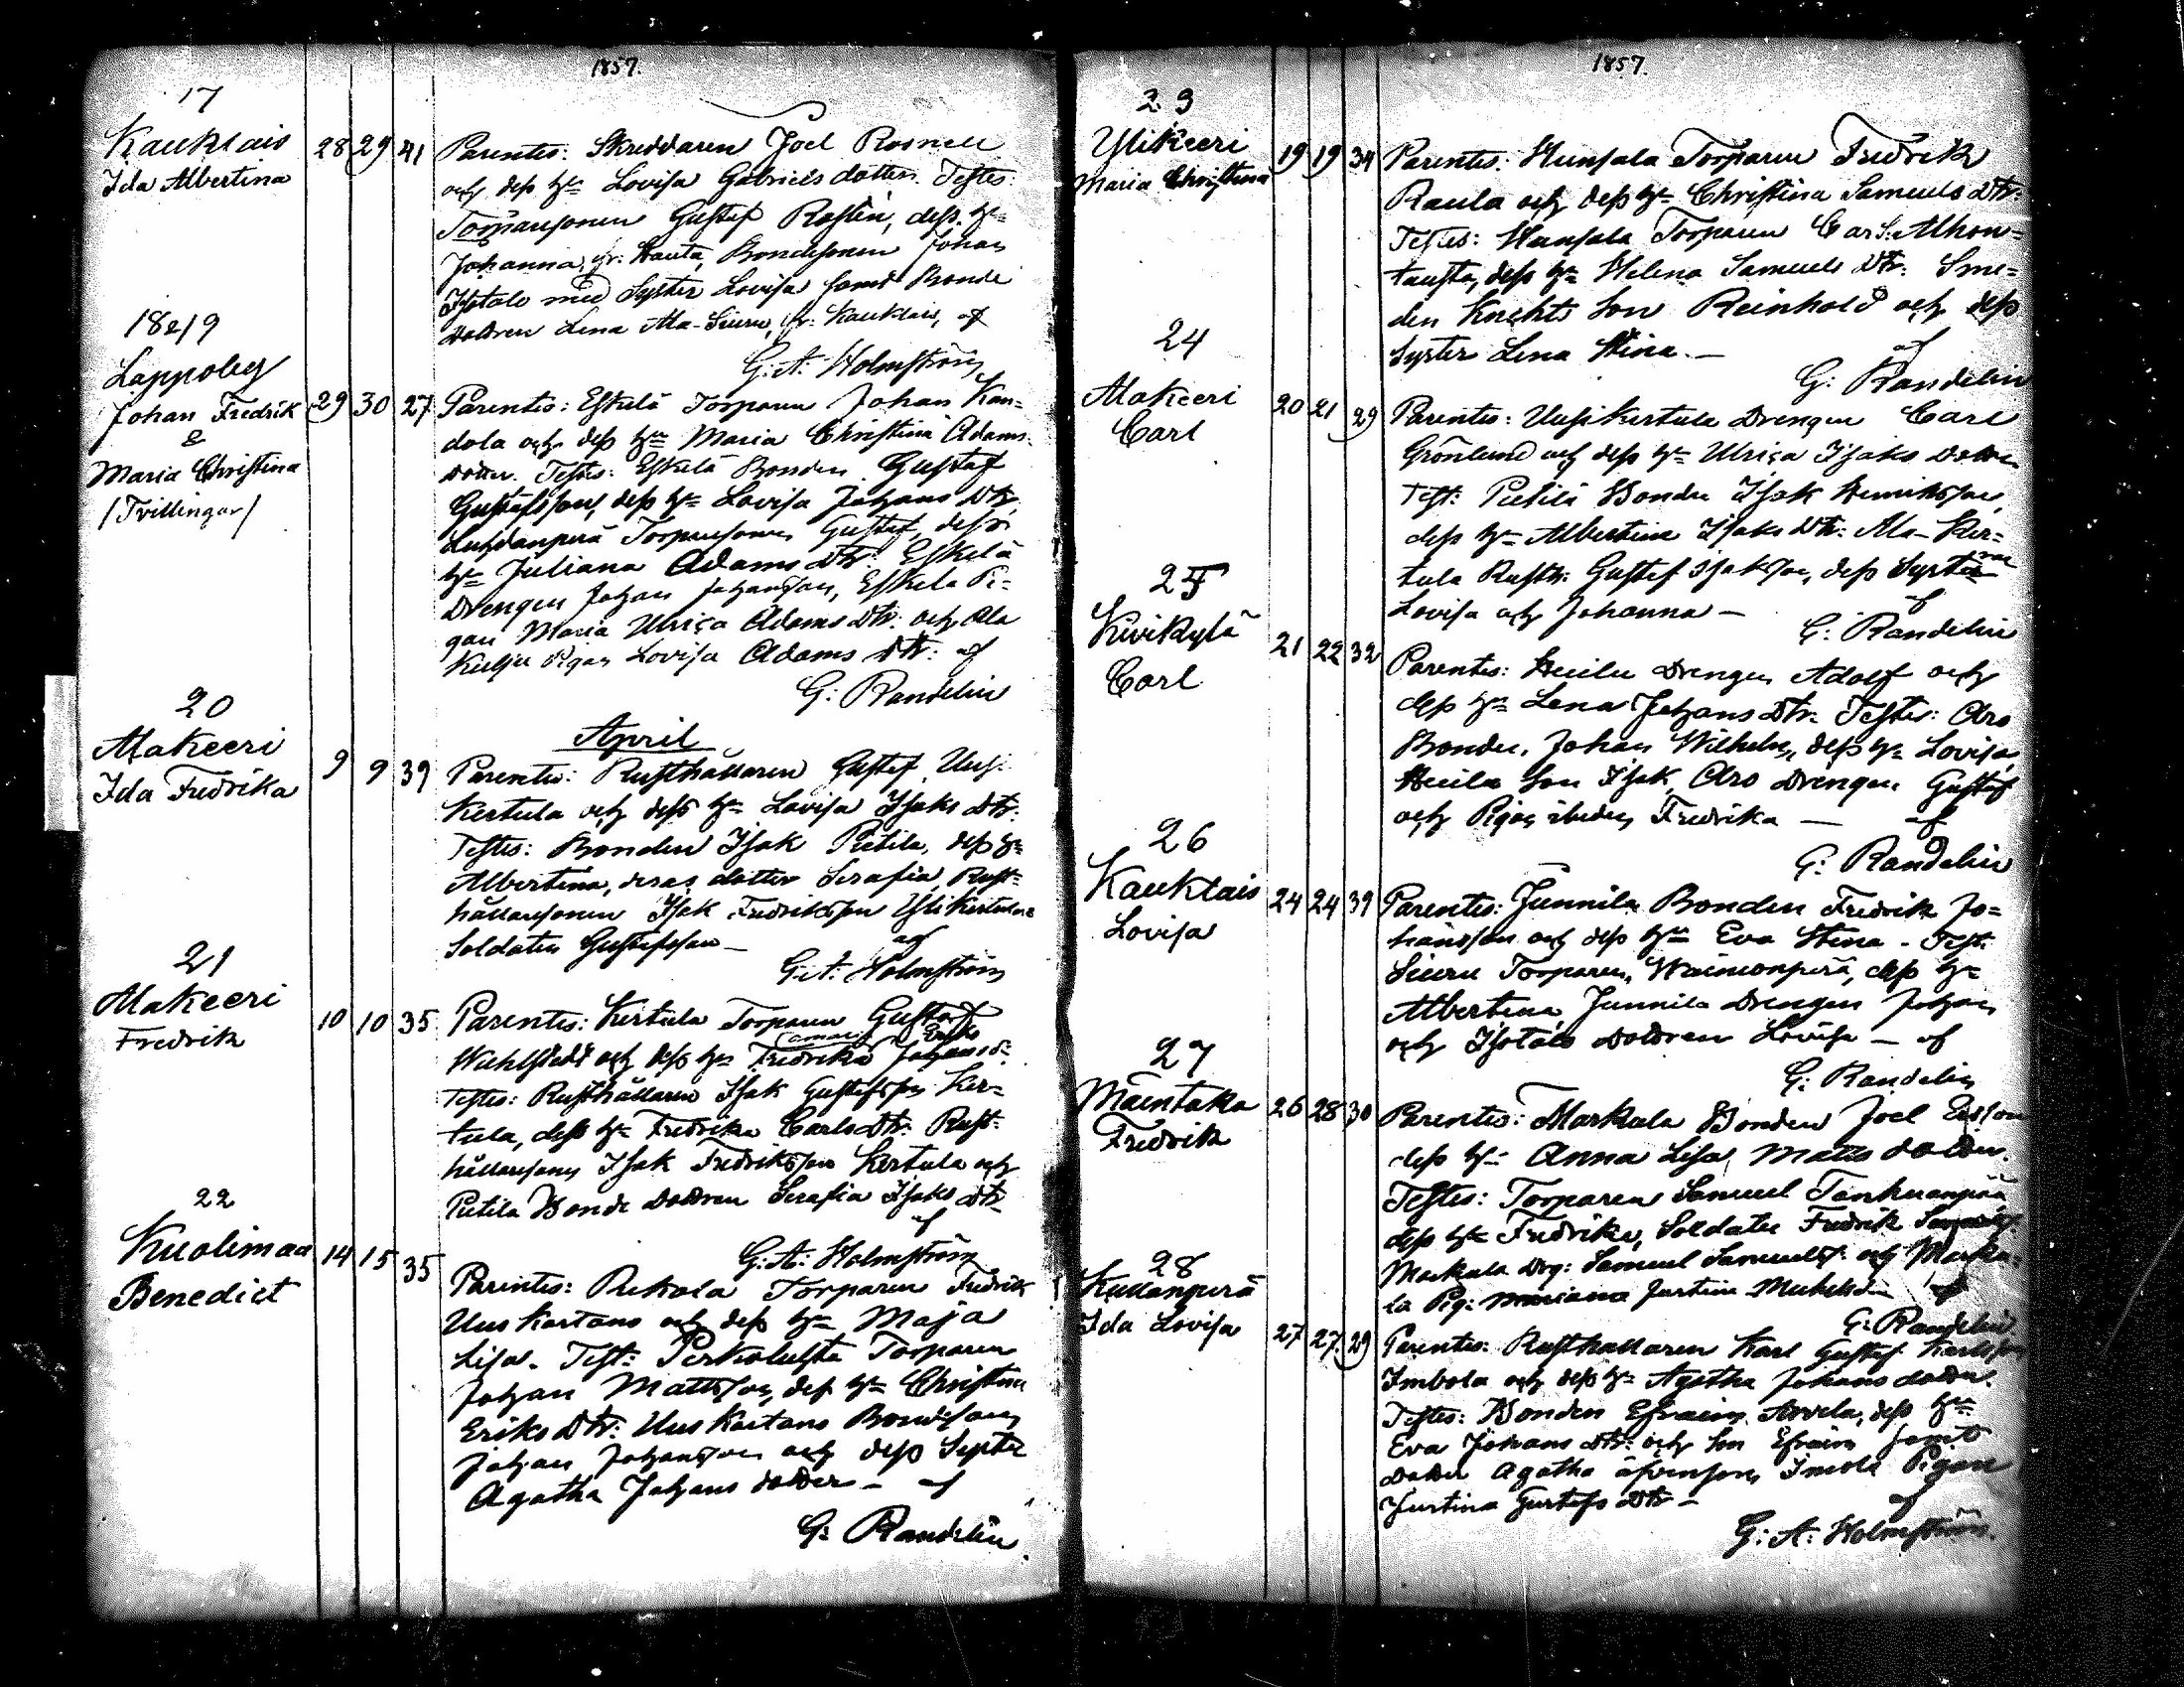 1857.
17
Kauklais
Ida Albertina
28 29 41
Parentes: Skreddaren Joel Rosnell
och dess hu Lovisa Gabriels dotter. Testes:
Torparesonen Gustaf Rostén, dess hu
Johanna, fr: Hauta, Bondesonen Johan
Isotalo med Syster Lovisa samt Bonde
Dottren Lena Ala-Sieru, fr: Kauklais, af
G: A: Holmström
18 & 19
Lappoby
Johan Fredrik
&
Maria Christina
/Tvillingar/
29 30 27
Parentes: Eskelä Torparen Johan Kan=
dola och dess hu Maria Christina Adams
dotter. Testes: Eskelä Bonden Gustaf
Gustafsson, dess hu Lovisa Johans Dtr,
Torparesonen Gustaf, dess
hu Juliana Adams Dtr: Eskelä
Drengen Johan Johansson, Eskela Pi=
gan Maria Ulrica Adams Dtr: och Ala
Kulju Pigan Lovisa Adams Dtr: af
G: Randelin
April
20
Alakeeri
Ida Fredrika
9 9 39
Parentes: Rusthållaren Gustaf Uusi
Kertula och dess hu Lovisa Isaks Dtr.
Testes: Bonden Isak Pietila, dess hu
Albertina, deras dotter Serafia, Rust=
hållaresonen Isak Fredriksson Ylikertula
Soldaten Gustafsson — af
G: A: Holmström
21
Alakeeri
Fredrik
10 10 35
Parentes: Kertula Torparen Gustaf
Wahlstedt och dess hu Fredrika Johansd:
Testes: Rusthållaren Isak Gustafsson Ker=
tula, dess hu Fredrika Carls Dtr: Rust=
hållaresonen Isak Fredriksson Kertula och
Pietila Bonde Dottren Serafia Isaks Dtr
af
G: A: Holmström
22
Kuolimaa
Benedict
14 15 35
Parentes: Rekola Torparen Fredrik
Uuskartano och dess hu Maja
Lisa. Test: Torparen
Johan Mattsson, dess hu Christina
Eriks Dtr: Uuskartano Bondeson
Johan Johansson och dess Syster
Agatha Johans dotter — af
G: Randelin
1857.
23
Ylikeeri
Maria Christina
19 19 34
Parentes: Hunsala Torparen Fredrik
Raula och dess hu Christina Samuels Dtr:
Testes: Hunsala Torparen Carl Alhon=
tausta, dess hu Helena Samuels Dtr: Sme=
den Knchts Son Reinhold och dess
Syster Lena Stina. — af
G: Randelin
24
Alakeeri
Carl
20 21 29
Parentes: Uusikertula Drengen Carl
Grönlund och dess hu Ulrica Isaks Dotter
Test: Pietilä Bonden Isak Henriksson,
dess hu Albertina Isaks Dtr: Ala-Ker=
tula Rusth: Gustaf Isaksson, dess Systrar
Lovisa och Johanna — af
G: Randelin
25
Kivikylä
Carl
21 22 32
Parentes: Heicilu Drengen Adolf och
dess hu Lena Johans Dtr: Testes: Aro
Bonden Johan Wilhelm, dess hu Lovisa,
Son Isak, Aro Drengen Gustaf
och Pigan ibiden Fredrika — af
G: Randelin
26
Kauklais
Lovisa
24 24 39
Parentes: Junnila Bonden Fredrik Jo=
hansson och dess hu Eva Stina. Test:
Sieru Torparen Wainionperä, dess hu
Albertina, Junnila Drengen Johan
och Isotalo Dottren Lovisa — af
G: Randelin
27
Mäentaka
Fredrik
26 28 30
Parentes: Markula Bonden Joel
dess hu Anna Lisa Matts dotter.
Testes: Torparen Samuel Tankuanpää
dess hu Fredrika, Soldaten Fredrik
Markula Drg: Samuel Samuelss: och Marku=
la Pig: Justina Michelsd: af
G: Randelin
28
Kullanperä
Ida Lovisa
27 27 29
Parentes: Rusthållaren Karl Gustaf Karlsson
Imbola och dess hu Agatha Johans dotter.
Testes: Bonden Efraim Arvela, dess hu
Eva Johans Dtr: och Son Efraim samt
Dotter Agatha äfvensom Imola Pigan
Justina Gustafs Dtr — af
G: A: Holmström.